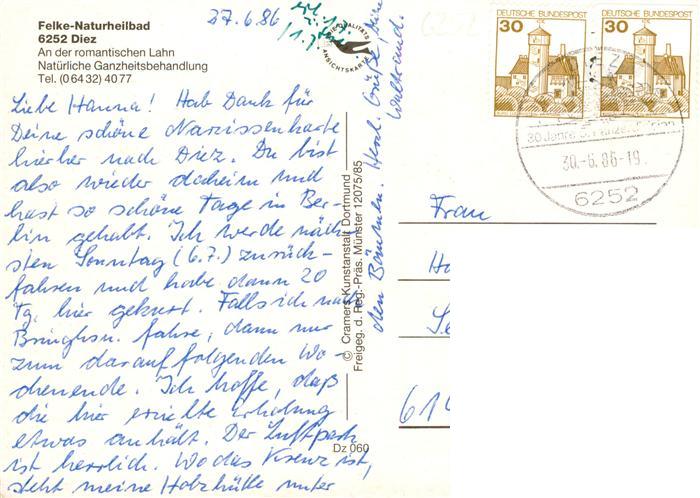 Felke-Naturheilbad
6252 Diez
An der romantischen Lahn
Natürliche Ganzheitsbehandlung
Tel. (0 64 32) 40 77
27.6.86
Liebe Hanna! Hab Dank für
Deine schöne Narzissenkarte
hierher nach Diez. Du bist
also wieder daheim und
hast so schöne Tage in Ber-
lin gehabt. Ich werde näch-
sten Sonntag (6.7.) zurück-
fahren und habe dann 20
Tg. hier gekurt. Falls ich nach
fahre, dann nur
zum darauffolgenden Wo-
chenende. Ich hoffe, daß
die hier erzielte Erholung
etwas anhält. Der Luftpark
ist herrlich. Wo das Kreuz ist,
steht meine Holzhütte unter
den Bäumen. Herzl. Grüße,
Waltraud.
QUALITÄTS
ANSICHTSKARTE
© Cramers Kunstanstalt Dortmund
Freigeg. d. Reg.-Präs. Münster 12075/85
Dz 060
30 DEUTSCHE BUNDESPOST
30 DEUTSCHE BUNDESPOST
30 Jahre
30.-6.86-19
6252
Frau
Ha
61